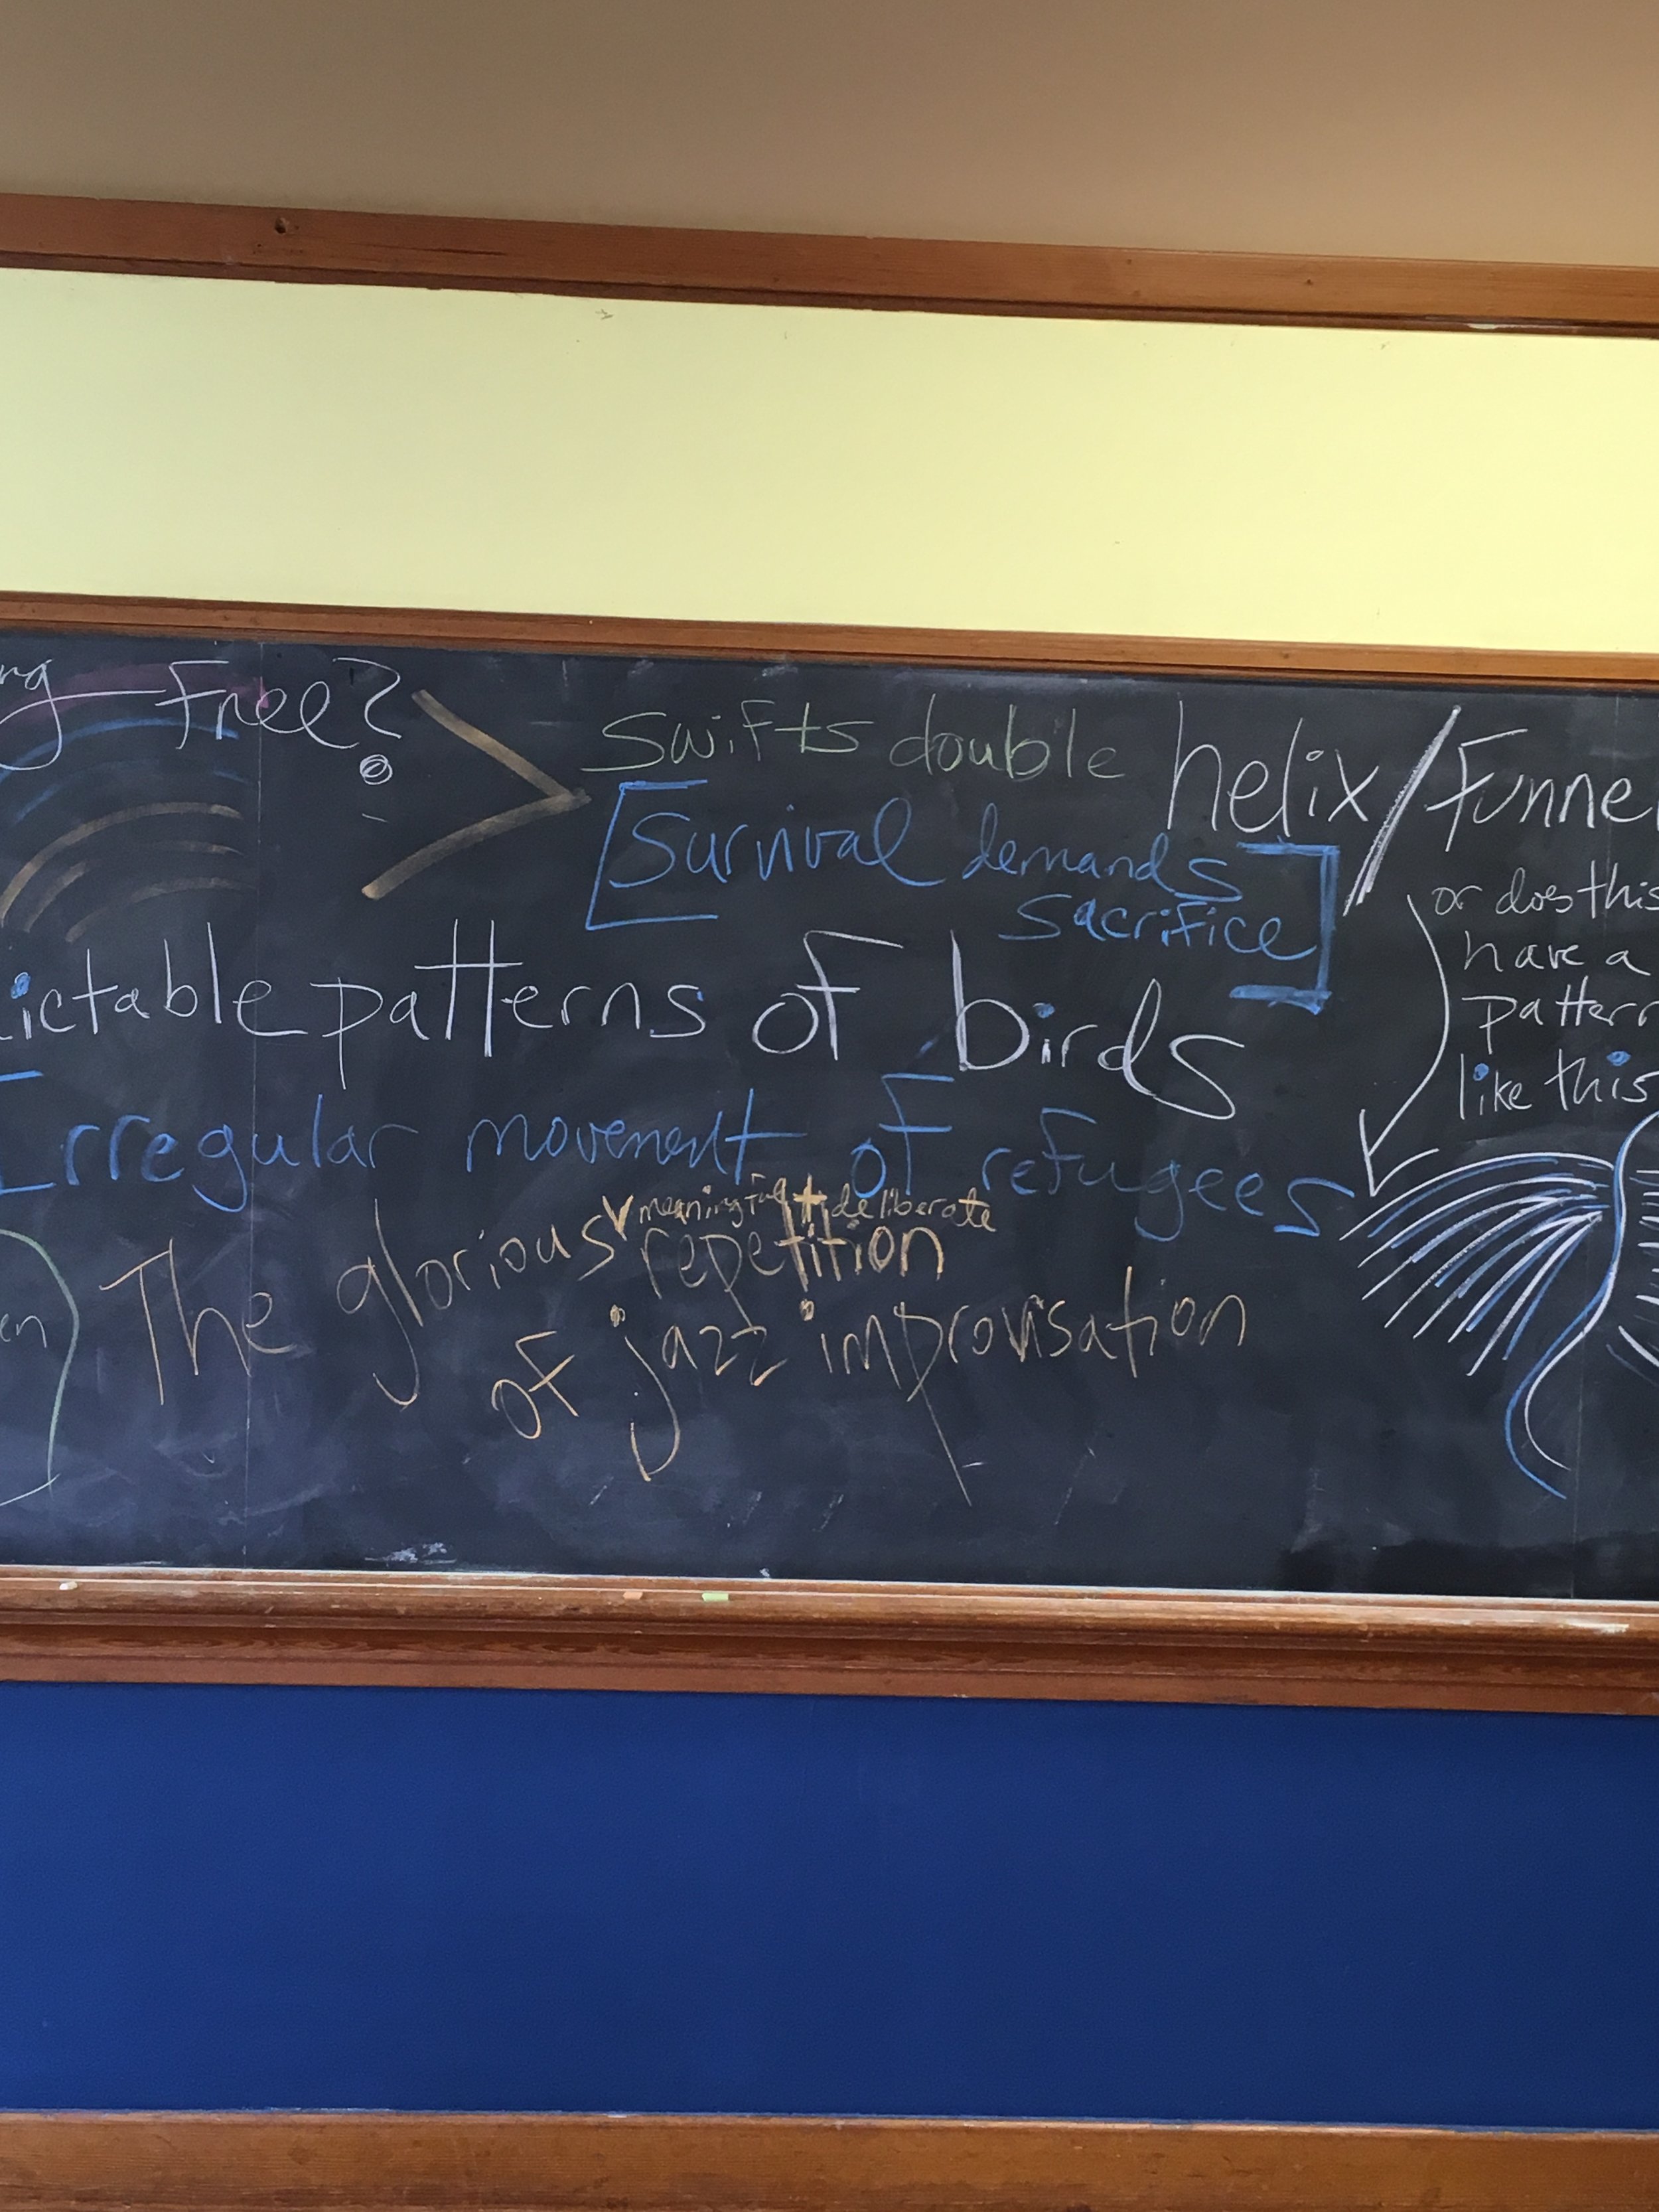 ng Free?
swifts double helix/Funne
[Survival demands
sacrifice]
or does this
have a
patter
like this
ictable patterns of birds
Irregular movement of refugees
meaningful + deliberate
The glorious repetition
of jazz improvisation
en